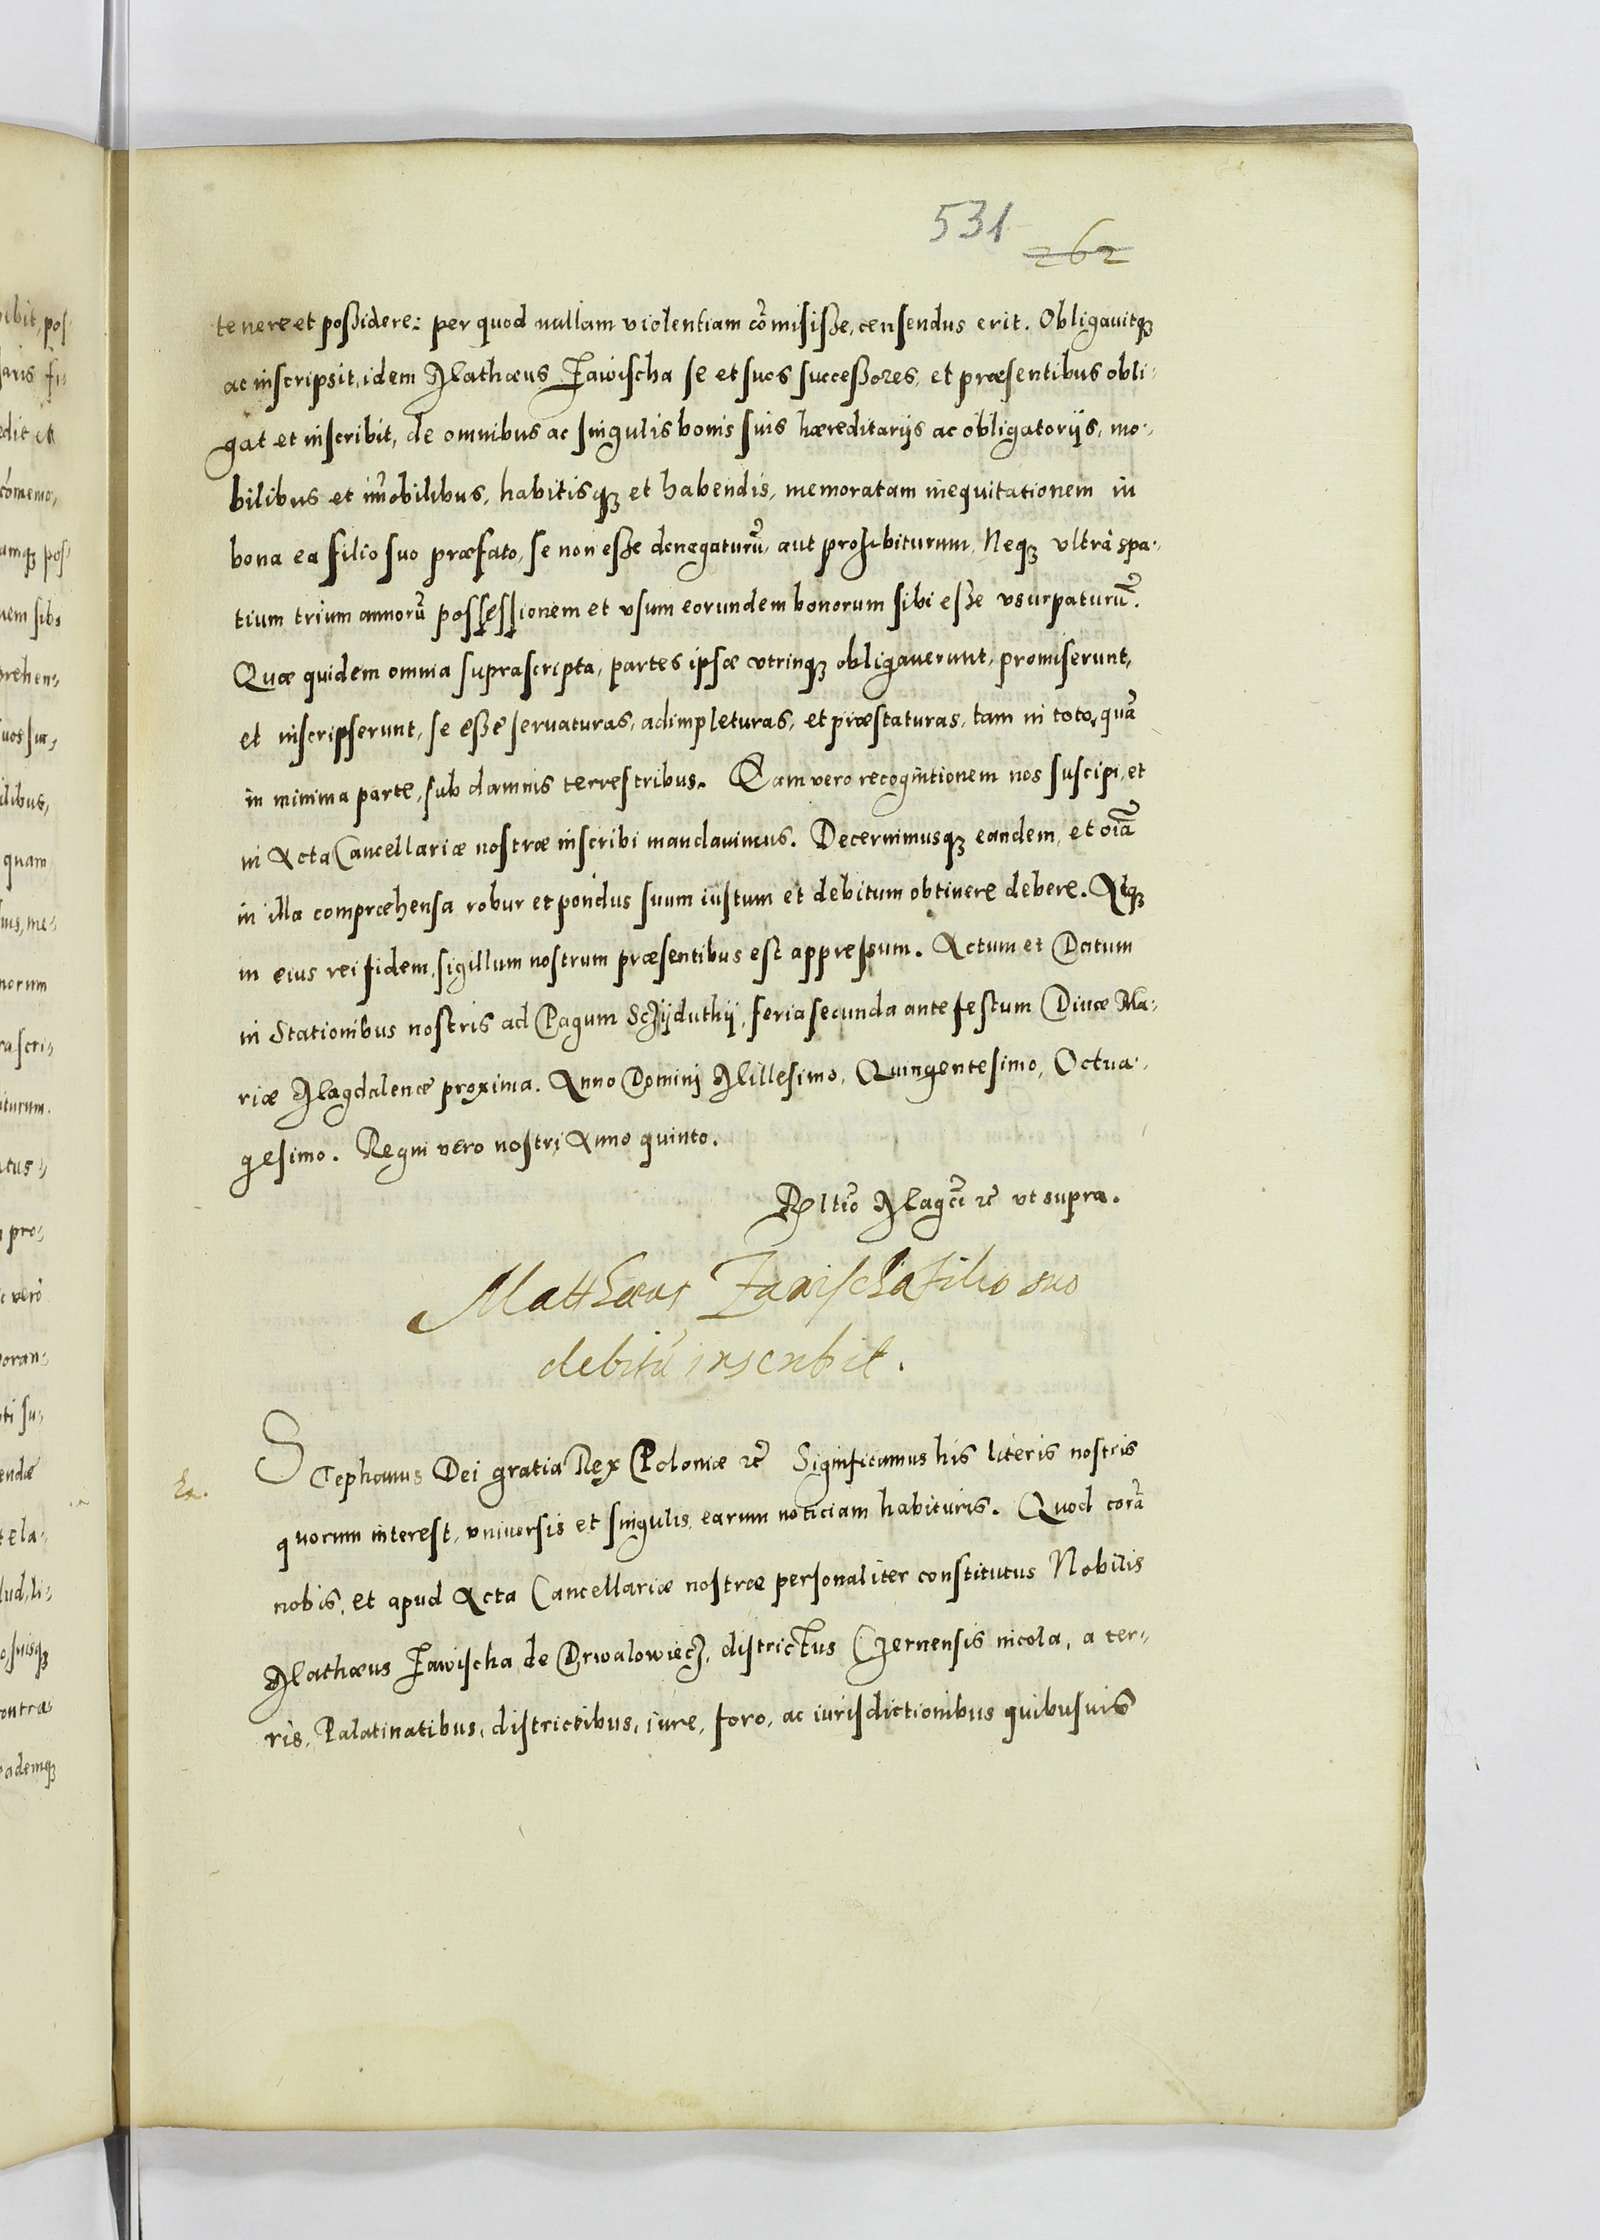 531
262
tenere et poßidere: per quod nullam violentiam cõmisiße, censendus erit. Obligauitqꝫ
ac inscripsit, idem Mathæus Zawischa se et suos succeßores, et præsentibus obli-
gat et inscribit, de omnibus ac singulis bonis suis hæreditarijs ac obligatorijs, mo-
bilibus et im̃obilibus, habitisqꝫ et habendis, memoratam inequitationem in
bona ea filio suo præfato, se non eße denegaturũ, aut prohibiturum, Neqꝫ vltrà spa-
tium trium annorũ possessionem et vsum eorundem bonorum sibi eße vsurpaturũ.
Quæ quidem omnia suprascripta, partes ipsæ vtrinqꝫ obligauerunt, promiserunt,
et inscripserunt, se eße seruaturas, adimpleturas, et præstaturas, tam in toto, quã
in minima parte, sub damnis terrestribus. Quam vero recognitionem nos suscipi, et
in Acta Cancellariæ nostræ inscribi mandauimus. Decernimusqꝫ eandem, et oĩa
in illa compræhensa robur et pondus suum iustum et debitum obtinere debere. Atqꝫ
in eius rei fidem, sigillum nostrum præsentibus est appressum. Actum et Datum
in Stationibus nostris ad Pagum feria secunda ante festum Diuæ Ma-
riæ Magdalenæ proxima. Anno Domini Millesimo, Quingentesimo, Octua-
gesimo. Regni vero nostri Anno quinto.
Rltio Magci etc̃ vt supra.
Matthæus Zawischa filio suo
debitũ inscribit.
Stephanus Dei gratia Rex Poloniæ etc̃ Significamus his literis nostris
quorum interest, vniuersis et singulis, earum noticiam habituris. Quod corã
nobis, et apud Acta Cancellariæ nostræ personaliter constitutus Nobilis
Mathæus Zawischa de Drwalowiecz, districtus Czernensis incola, a ter-
ris, Palatinatibus, districtibus, iure, foro, ac iurisdictionibus quibusuis